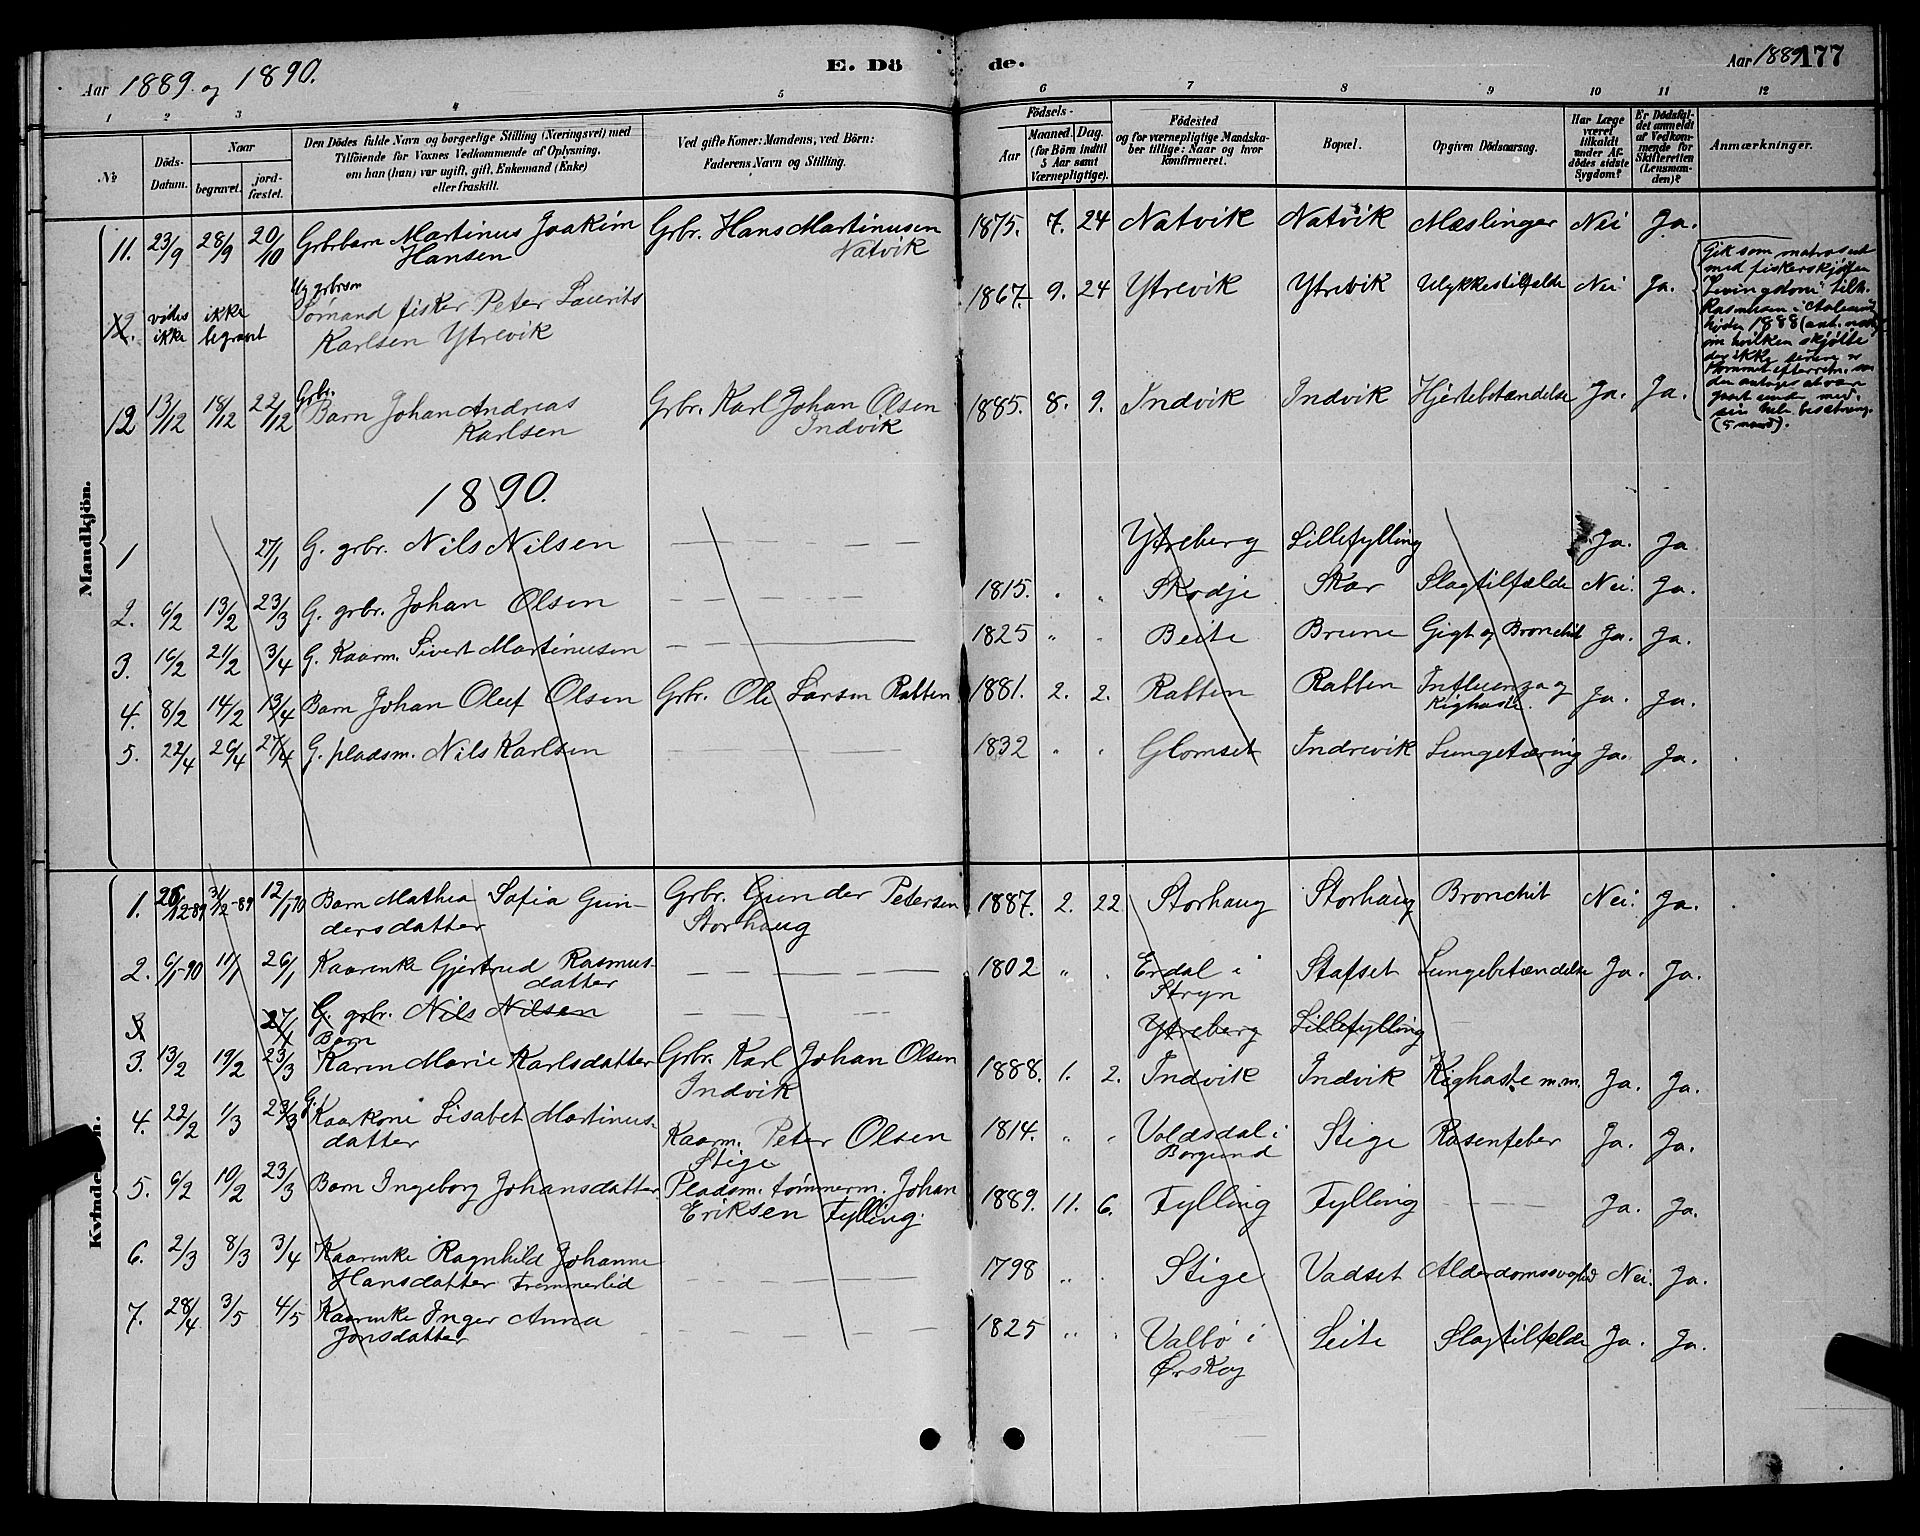 Aar 1889. og 1890.
E. Dö de.
Aar 1889 177
1 2 3 4 5 6 7 8 9 10 11 12
No
Döds-Datum.
Naar
begravet.
jord-fæstet.
Den Dödes fulde Navn og borgerlige Stilling (Næringsvei) med
Tilföiende for Voxnes Vedkommende af Oplysning,
om han (hun) var ugift, gift, Enkemand (Enke)
eller fraskilt.
Ved gifte Koner: Mandens, ved Börn:
Faderens Navn og Stilling.
Födsels-
Aar
Maaned. Dag.
(for Börn indtil
5 Aar samt
Værnepligtige).
Födested
og for værnepligtige Mandska-
ber tillige: Naar og hvor
konfirmeret.
Bopæl.
Opgiven Dödsaarsag.
Har Læge
været
tilkaldt
under Af-
dödes sidste
Sygdom?
Er Dödsfal-
det anmeldt
af Vedkom-
mende for
Skifteretten
(Lensman-
den)?
Anmærkninger.
Mandkjön.
11. 23/9 28/9 20/10 Grbrbarn Martinus Joakim Grbr. Hans Martinusen 1875. 7. 24 Natvik Natvik Mæslinger Nei Ja.
Hansen Natvik
Ug grbrsøn
12. vides ikke Sømand fisker Peter Laurits 1867. 9. 24 Ytrevik Ytrevik Ulykkestilfælde Nei Ja.
ikke begravet Karlsen Ytrevik
Gik som matros ud
med fiskerskjøiten
"Livingston" tilh.
Rasmussen i Aalesund
1888
om hvilken skjøite
der ikke senere er
kommet efterretn.
den antages at være
gaaet under med
sin hele besætning.
(5 mand).
Grbr.
12 13/12 18/12 22/12 Barn Johan Andreas Grbr. Karl Johan Olsen 1885. 8. 9. Indvik Indvik Hjertebetændelse Ja. Ja.
Karlsen Indvik
1890.
1 27/1 G. grbr. Nils Nilsen — — — — Ytreberg Lillefylling Ja. Ja
2. 6/2 13/2 23/3 G. grbr. Johan Olsen — — — — 1815. " " Skodje Skar Slagtilfælde Nei. Ja.
3. 16/2 21/2 3/4 G. Kaarm. Sivert Martinusen — — 1825 " " Beite Brune Gigt og Bronchit Ja. Ja.
4. 8/2 14/2 13/4 Barn Johan Oluf Olsen Grbr. Ole Larsen Ratten 1881. 2. 2. Ratten Ratten Influenza og Ja. Ja.
Kighoste.
5. 22/4 26/4 27/4 G. pladsm. Nils Karlsen — — 1832 " " Glomset Indrevik Lungetæring Ja. Ja.
Kvindekjön.
1. 26/12-89 31/12-89 12/1 90 Barn Mathea Sofia Gun- Grbr. Gunder Petersen 1887. 2. 22 Storhaug Storhaug Bronchit Nei. Ja.
dersdatter Storhaug
2. 6/1-90 11/1 26/1 Kaarenke Gjertrud Rasmus- — — — — 1802 " " Erdal i Stafset Lungebetændelse Ja. Ja.
datter Stryn
3 27/1 G. grbr. Nils Nilsen — — — — Ytreberg Lillefylling
Barn
3. 13/2 19/2 23/3 Karen Marie Karlsdatter Grbr. Karl Johan Olsen 1888. 1. 2. Indvik Indvik Kighoste m.m. Ja. Ja.
Indvik
4. 22/2 1/3 23/3 G. Kaarkone Lisabet Martinus- Kaarm. Peter Olsen 1814. " " Voldsdal i Stige Rosenfeber Ja. Ja.
datter Stige Borgund
5. 6/2 10/2 23/3 Barn Ingeborg Johansdatter Pladsm. tømmerm. Johan 1889. 11. 6. Fylling Fylling — — — Ja. Ja.
Eriksen Fylling.
6. 2/3 8/3 3/4 Kaarenke Ragnhild Johanne 1798 " " Stige Vadset Alderdomssvaghed Nei. Ja.
Hansdatter Fremmerlid — — — —
7. 28/4 3/5 4/5 Kaarenke Inger Anna 1825 " " Valbø i Leite Slagtilfælde Ja. Ja.
Jonsdatter — — — — Ørskog